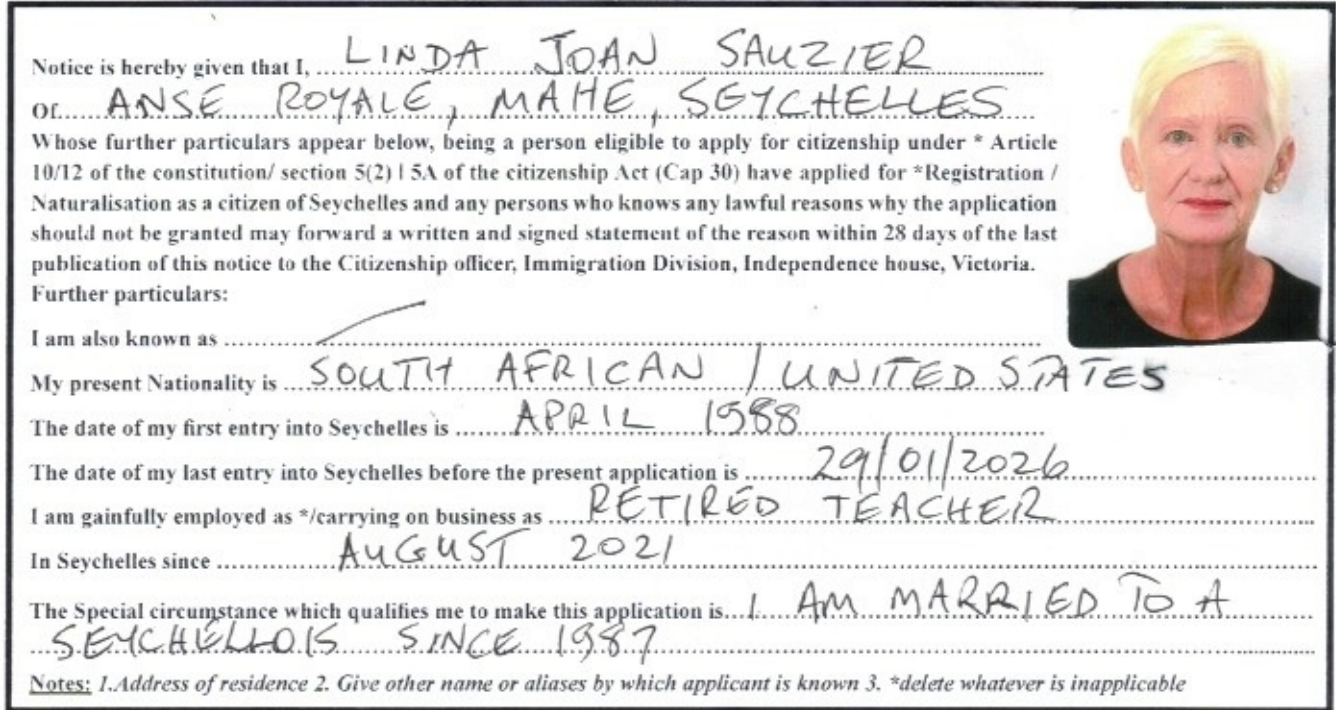 Notice is hereby given that I, LINDA JOAN SAUZIER
Of ANSE ROYALE, MAHE, SEYCHELLES
Whose further particulars appear below, being a person eligible to apply for citizenship under * Article
10/12 of the constitution/ section 5(2) | 5A of the citizenship Act (Cap 30) have applied for *Registration /
Naturalisation as a citizen of Seychelles and any persons who knows any lawful reasons why the application
should not be granted may forward a written and signed statement of the reason within 28 days of the last
publication of this notice to the Citizenship officer, Immigration Division, Independence house, Victoria.
Further particulars:
I am also known as
My present Nationality is SOUTH AFRICAN / UNITED STATES
The date of my first entry into Seychelles is APRIL 1988
The date of my last entry into Seychelles before the present application is 29/01/2026
I am gainfully employed as */carrying on business as RETIRED TEACHER
In Seychelles since AUGUST 2021
The Special circumstance which qualifies me to make this application is I AM MARRIED TO A
SEYCHELLOIS SINCE 1987
Notes: 1.Address of residence 2. Give other name or aliases by which applicant is known 3. *delete whatever is inapplicable